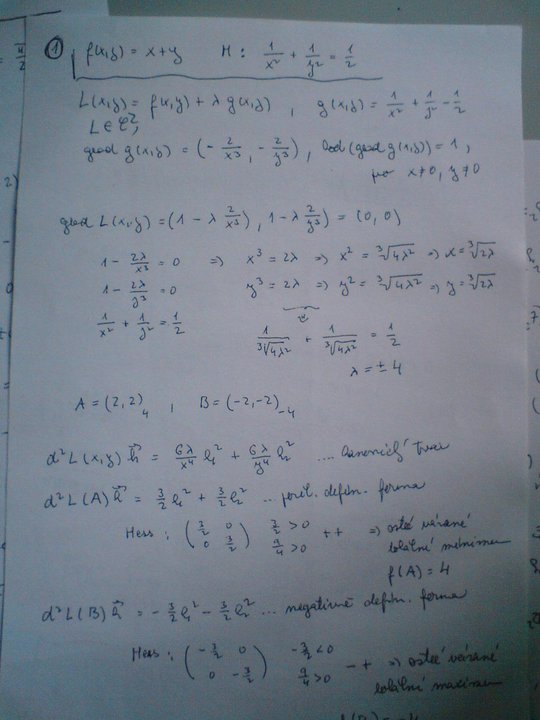 ① f(x,y) = x+y M: 1/x² + 1/y² = 1/2
L(x,y) = f(x,y) + λ g(x,y) , g(x,y) = 1/x² + 1/y² - 1/2
L ∈ C²,
grad g(x,y) = (-2/x³, -2/y³), hod(grad g(x,y)) = 1,
pro x≠0, y≠0
grad L(x,y) = (1 - λ 2/x³, 1 - λ 2/y³) = (0,0)
1 - 2λ/x³ = 0 ⇒ x³ = 2λ ⇒ x² = ³√4λ² ⇒ x = ³√2λ
1 - 2λ/y³ = 0 y³ = 2λ ⇒ y² = ³√4λ² ⇒ y = ³√2λ
1/x² + 1/y² = 1/2
1/³√4λ² + 1/³√4λ² = 1/2
λ = ±4
A = (2,2)₄ , B = (-2,-2)₋₄
d²L(x,y) h⃗ = 6λ/x⁴ h₁² + 6λ/y⁴ h₂² .... kanonický tvar
d²L(A) h⃗ = 3/2 h₁² + 3/2 h₂² ... pozit. defin. forma
Hess : (3/2 0 3/2 > 0
0 3/2) 9/4 > 0 ++ ⇒ ostré vázané
lokální minimum
f(A) = 4
d²L(B) h⃗ = -3/2 h₁² - 3/2 h₂² ... negativně defin. forma
Hess : (-3/2 0 -3/2 < 0
0 -3/2) 9/4 > 0 -+ ⇒ ostré vázané
lokální maximum